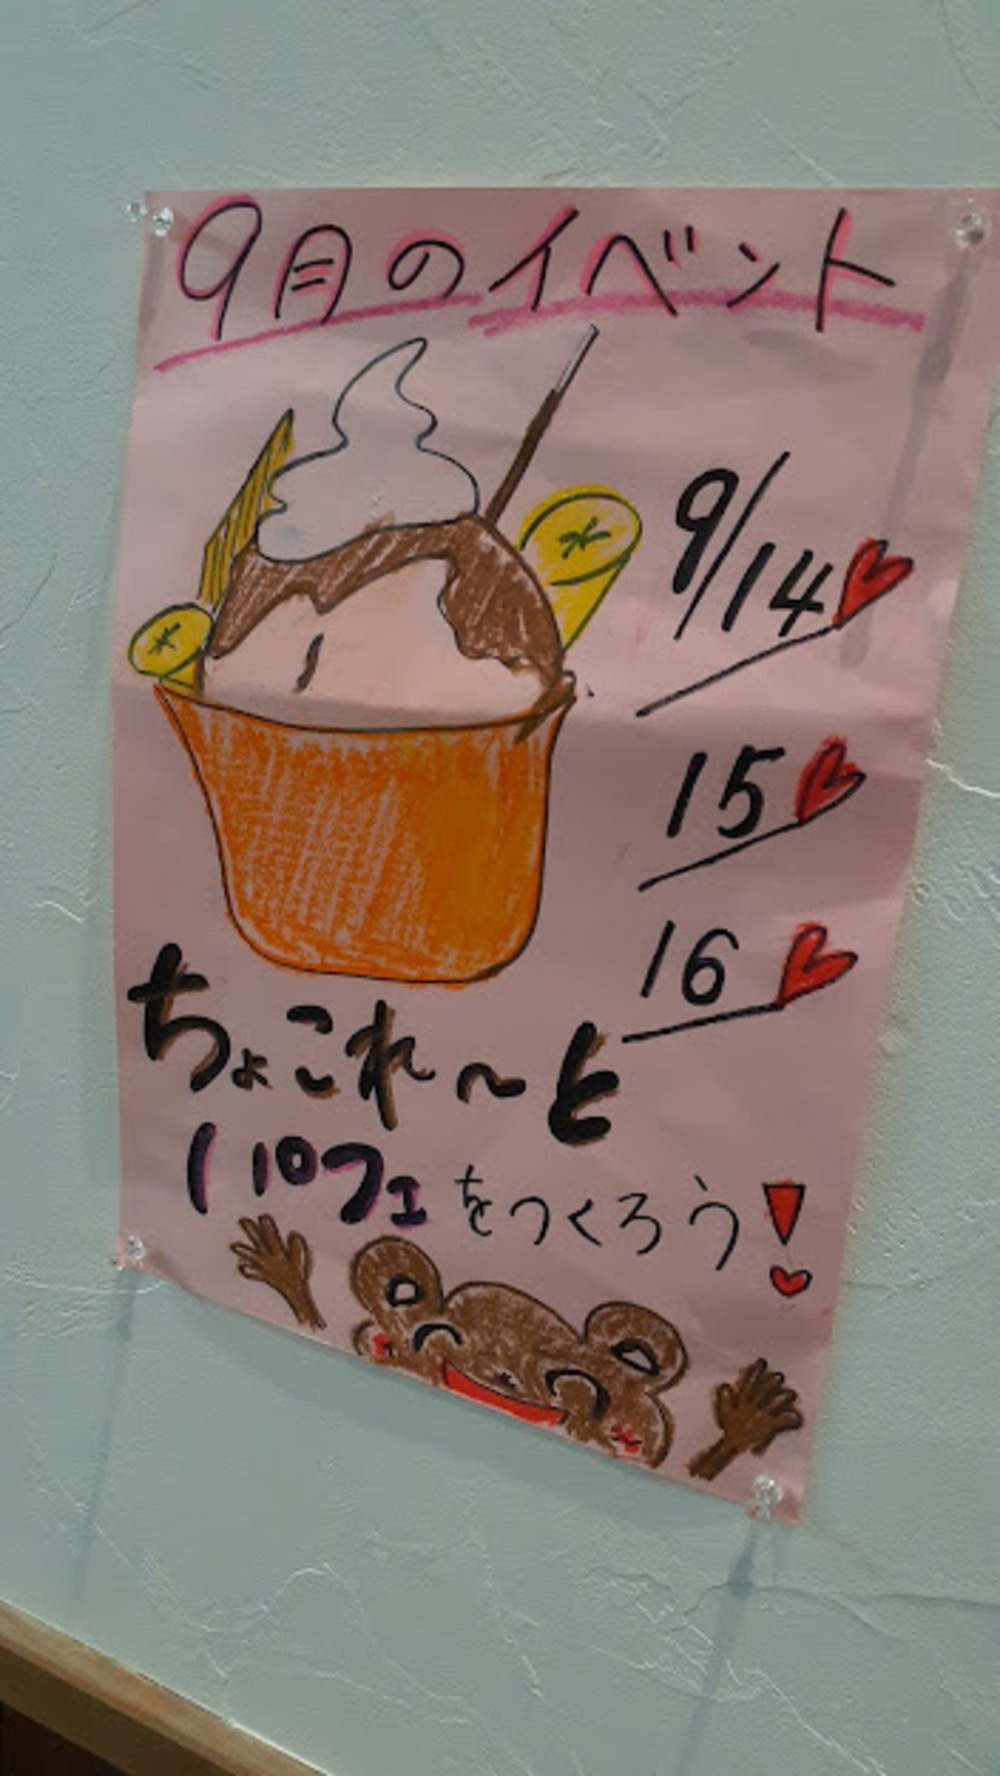 9月のイベント
9/14
15
16
ちょこれ～と
パフェをつくろう!